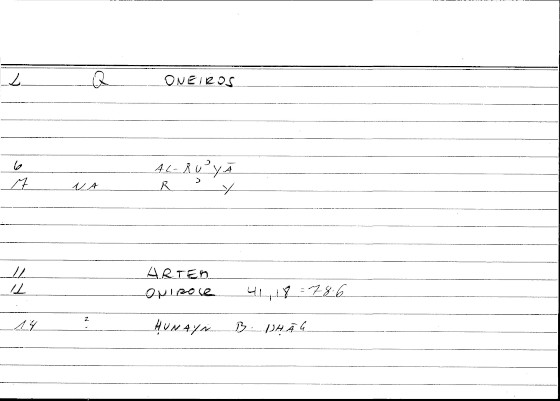 L Q ONEIROS
6 AL-RUʾYĀ
M NA R ʾ Y
11 ARTEM
12 ONIROCR 41,18 = 78.6
14 ? ḤUNAYN B. ISḤĀQ